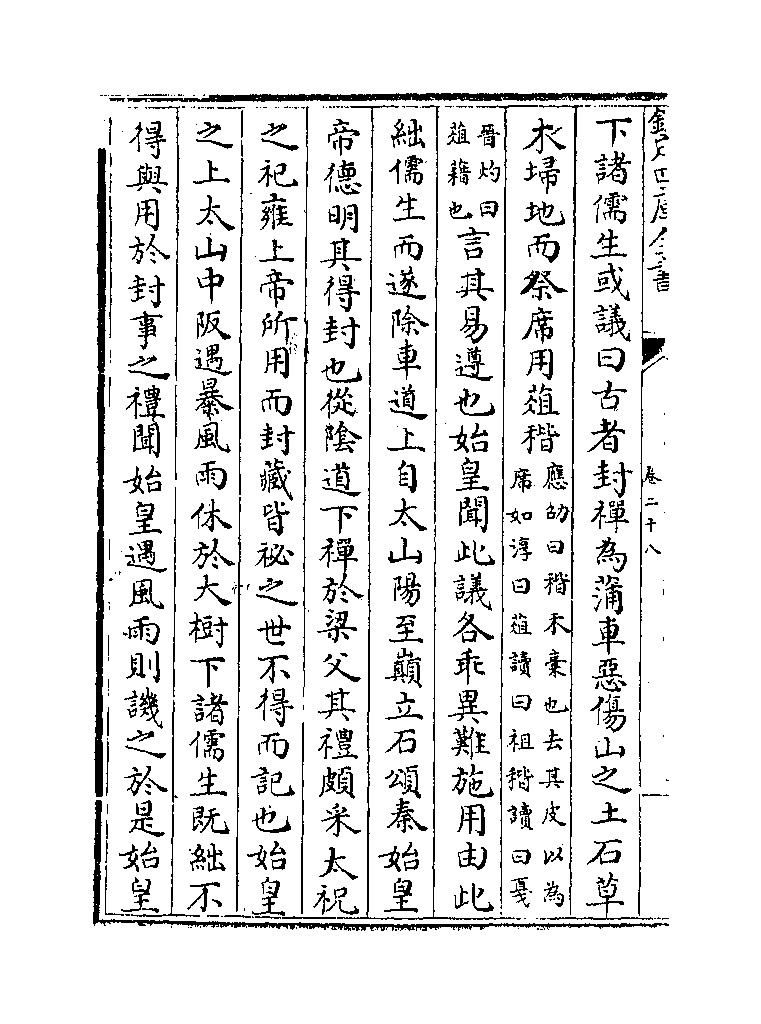 欽定四庫全書
卷二十八
下諸儒生或議曰古者封禪為蒲車惡傷山之土石草
木埽地而祭席用葅稭應劭曰稭禾稾也去其皮以為
席如淳曰葅讀曰租稭讀曰戛
晉灼曰
葅藉也言其易遵也始皇聞此議各乖異難施用由此
絀儒生而遂除車道上自太山陽至巔立石頌秦始皇
帝德明其得封也從陰道下禪於梁父其禮頗采太祝
之祀雍上帝所用而封藏皆祕之世不得而記也始皇
之上太山中阪遇暴風雨休於大樹下諸儒生既絀不
得與用於封事之禮聞始皇遇風雨則譏之於是始皇